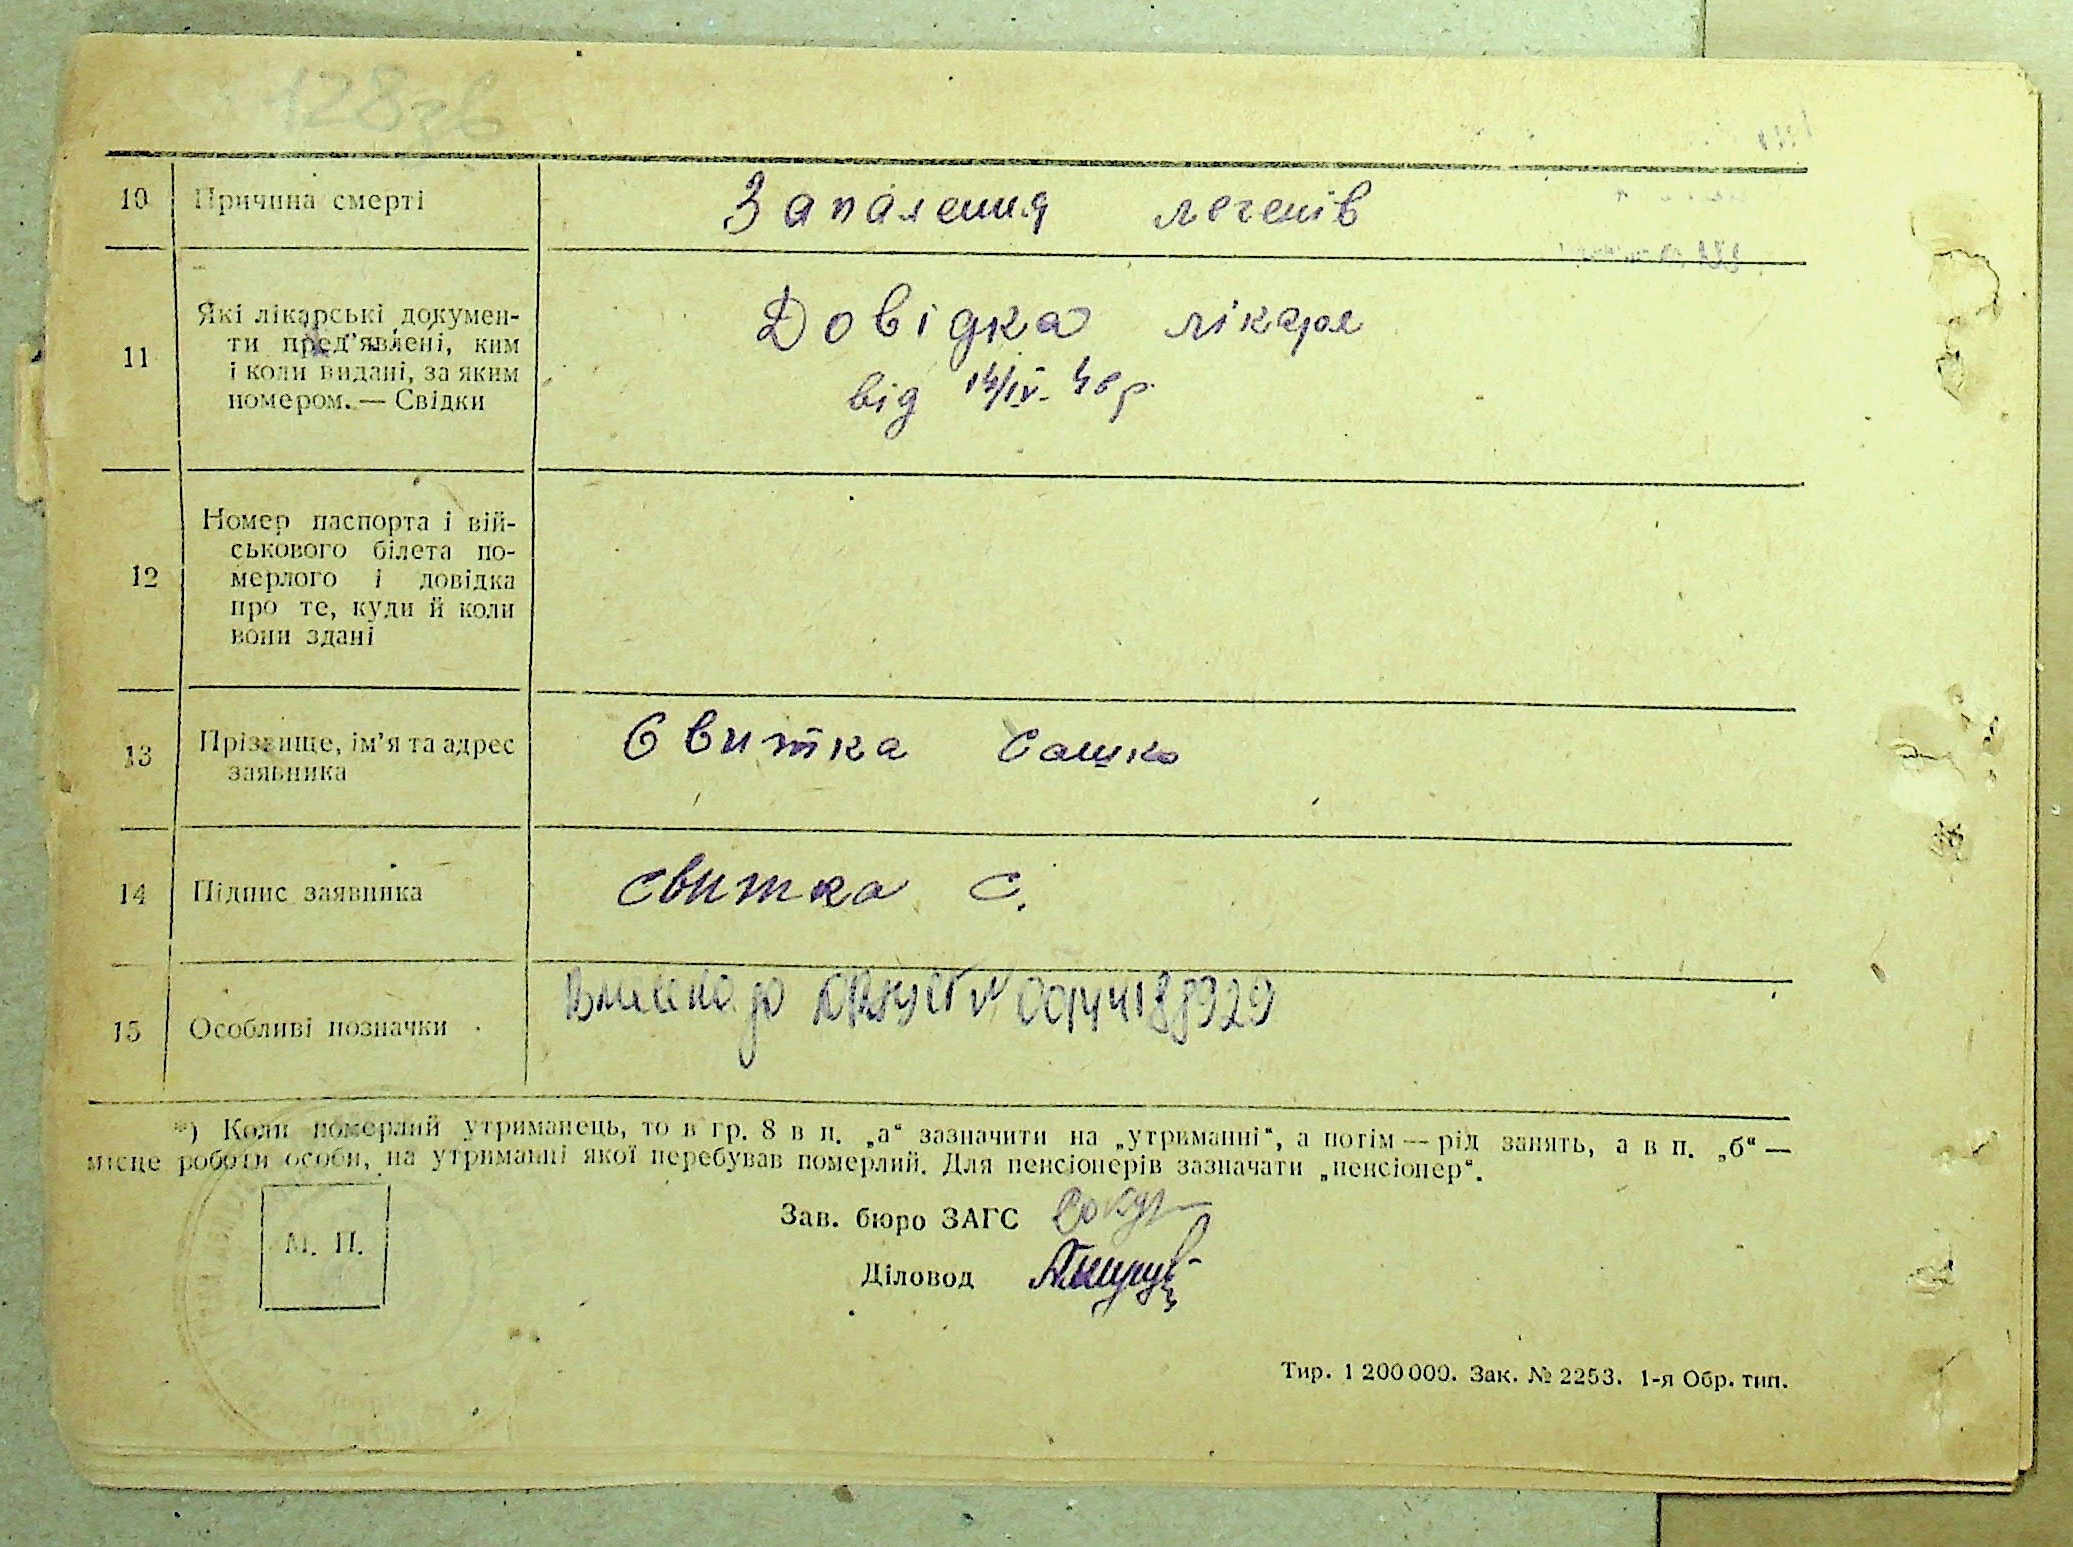 128зв
10 Причина смерті Запалення легенів
11 Які лікарські докумен-
ти пред'явлені, ким
і коли видані, за яким
номером. — Свідки
Довідка лікаря
від 14/IV- 40 р
12 Номер паспорта і вій-
ськового білета по-
мерлого і довідка
про те, куди й коли
вони здані
13 Прізвище, ім'я та адрес
заявника
Свитка Сашко
14 Підпис заявника Свитка С.
15 Особливі позначки
Внесено до ДРАЦСГ № 00144188929
*) Коли померлий утриманець, то в гр. 8 в п. „а“ зазначити на „утриманні“, а потім — рід занять, а в п. „б“ —
місце роботи особи, на утриманні якої перебував померлий. Для пенсіонерів зазначати „пенсіонер“.
М. П.
Зав. бюро ЗАГС
Діловод
Тир. 1 200 000. Зак. № 2253. 1-я Обр. тип.